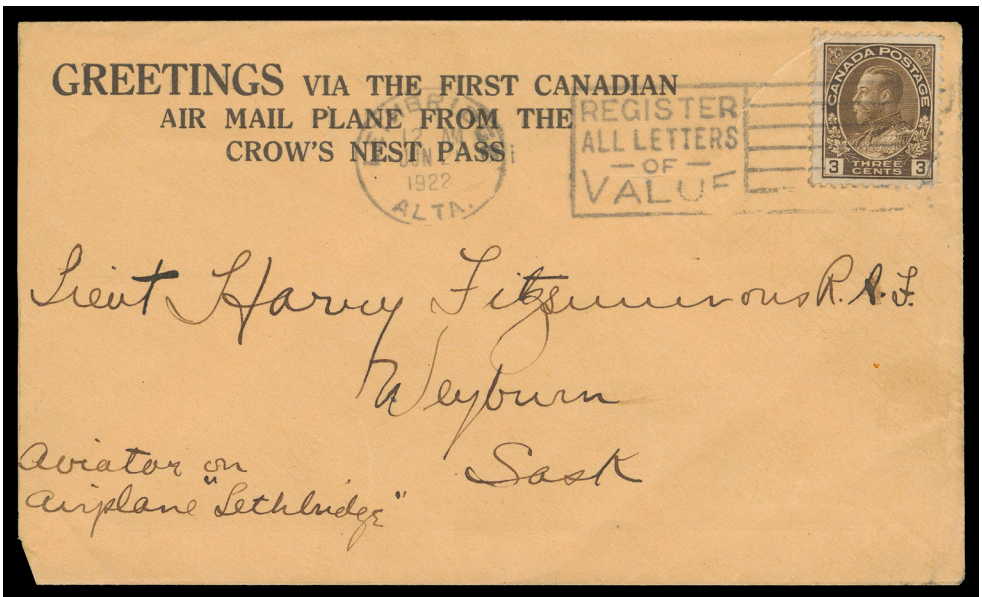 GREETINGS VIA THE FIRST CANADIAN
AIR MAIL PLANE FROM THE
CROW'S NEST PASS
LETHBRIDGE
12 M
JUN 1
1922
ALTA.
REGISTER
ALL LETTERS
— OF —
VALUE
CANADA POSTAGE
3 THREE CENTS 3
Lieut Harvey Fitzsimmons R.A.F.
Weyburn
Sask
Aviator on
Airplane "Lethbridge"